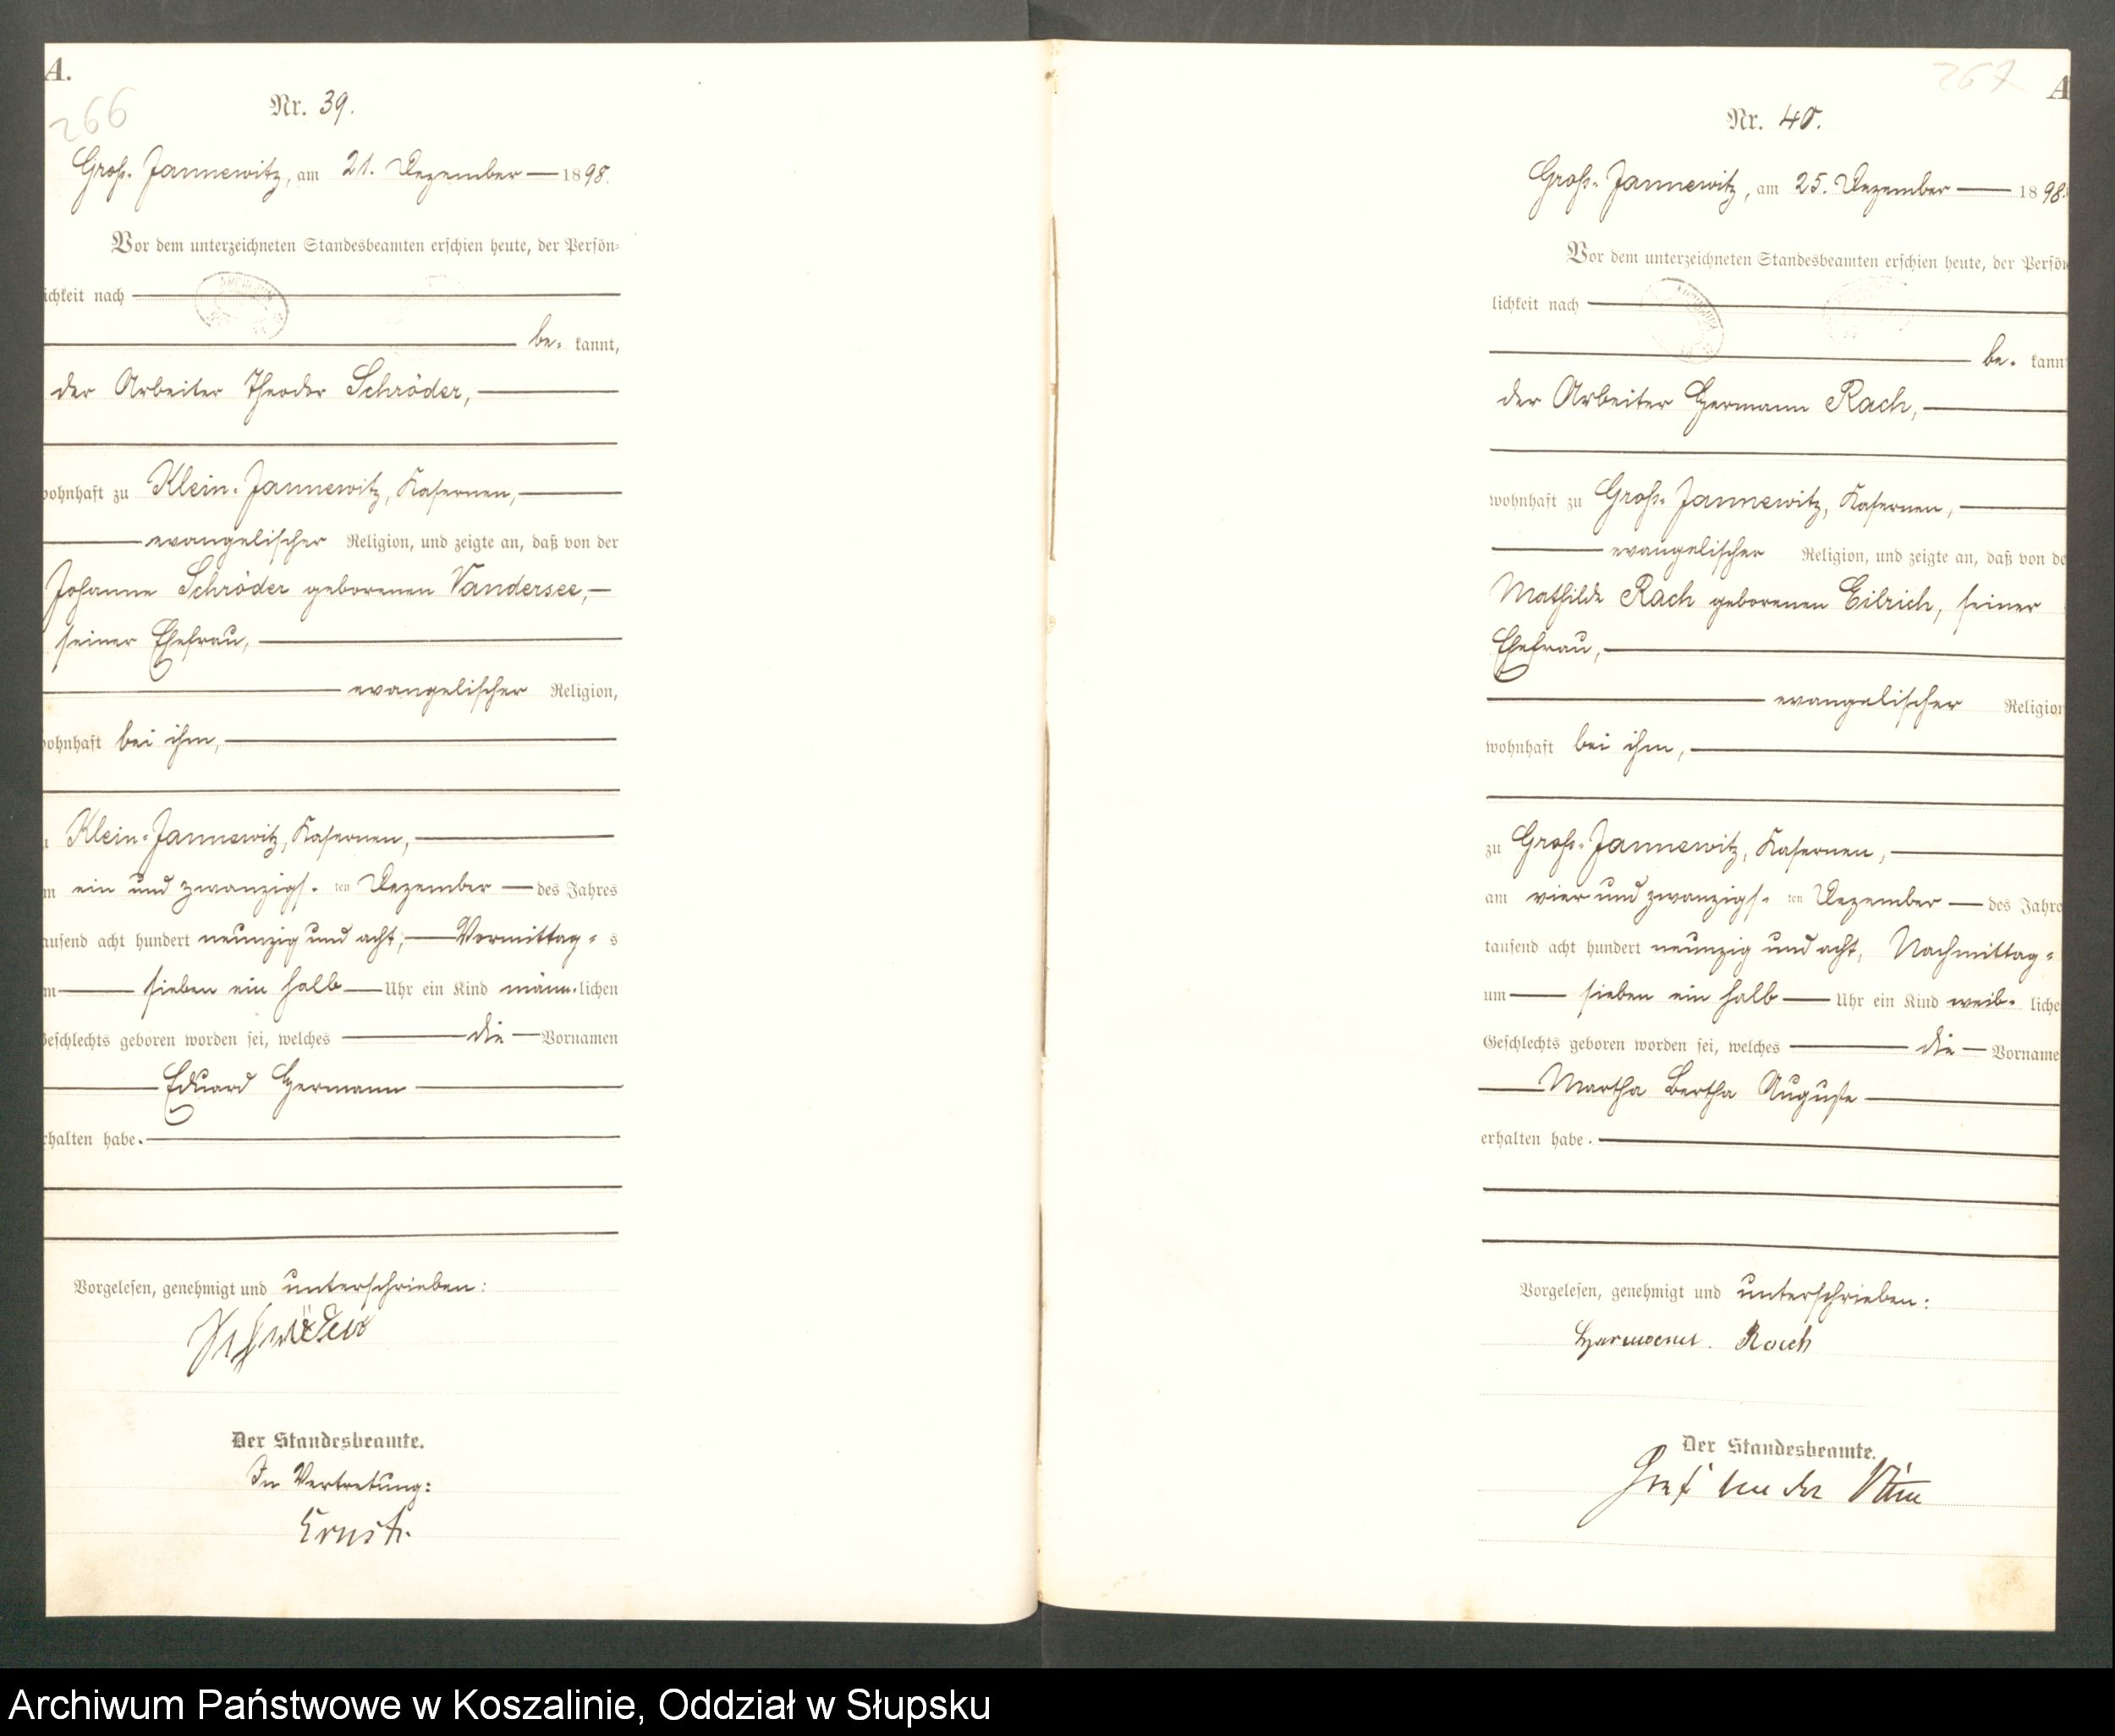 A.
266
Nr. 39.
Groß-Jannewitz, am 21. Dezember 1898.
Vor dem unterzeichneten Standesbeamten erschien heute, der Persön-
lichkeit nach
be- kannt,
der Arbeiter Theodor Schröder,
wohnhaft zu Klein-Jannewitz, Kasernen,
evangelischer Religion, und zeigte an, daß von der
Johanne Schröder geborenen Vandersee,
seiner Ehefrau,
evangelischer Religion,
wohnhaft bei ihm,
zu Klein-Jannewitz, Kasernen,
am ein und zwanzigs-ten Dezember des Jahres
tausend acht hundert neunzig und acht, Vormittag-s
um sieben ein halb Uhr ein Kind männ-lichen
Geschlechts geboren worden sei, welches die Vornamen
Eduard Hermann
erhalten habe.
Vorgelesen, genehmigt und unterschrieben:
Schröder
Der Standesbeamte.
In Vertretung:
Ernst.
267
A
Nr. 40.
Groß-Jannewitz, am 25. Dezember 1898.
Vor dem unterzeichneten Standesbeamten erschien heute, der Persön
lichkeit nach
be- kannt
der Arbeiter Hermann Rach,
wohnhaft zu Groß-Jannewitz, Kasernen,
evangelischer Religion, und zeigte an, daß von de
Mathilde Rach geborenen Eilrich, seiner
Ehefrau,
evangelischer Religion
wohnhaft bei ihm,
zu Groß-Jannewitz, Kasernen,
am vier und zwanzigs-ten Dezember des Jahre
tausend acht hundert neunzig und acht, Nachmittag-
um sieben ein halb Uhr ein Kind weib- liche
Geschlechts geboren worden sei, welches die Vorname
Martha Bertha Auguste
erhalten habe.
Vorgelesen, genehmigt und unterschrieben:
Hermann. Rach
Der Standesbeamte.
Graf von der
Archiwum Państwowe w Koszalinie, Oddział w Słupsku